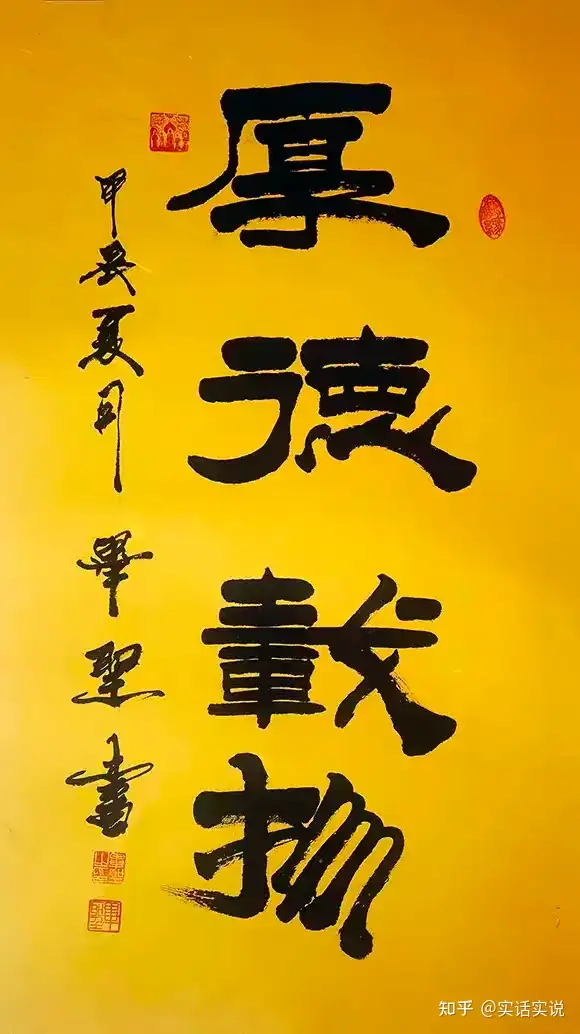 厚德載物
甲辰夏月 畢聖書
知乎 @实话实说